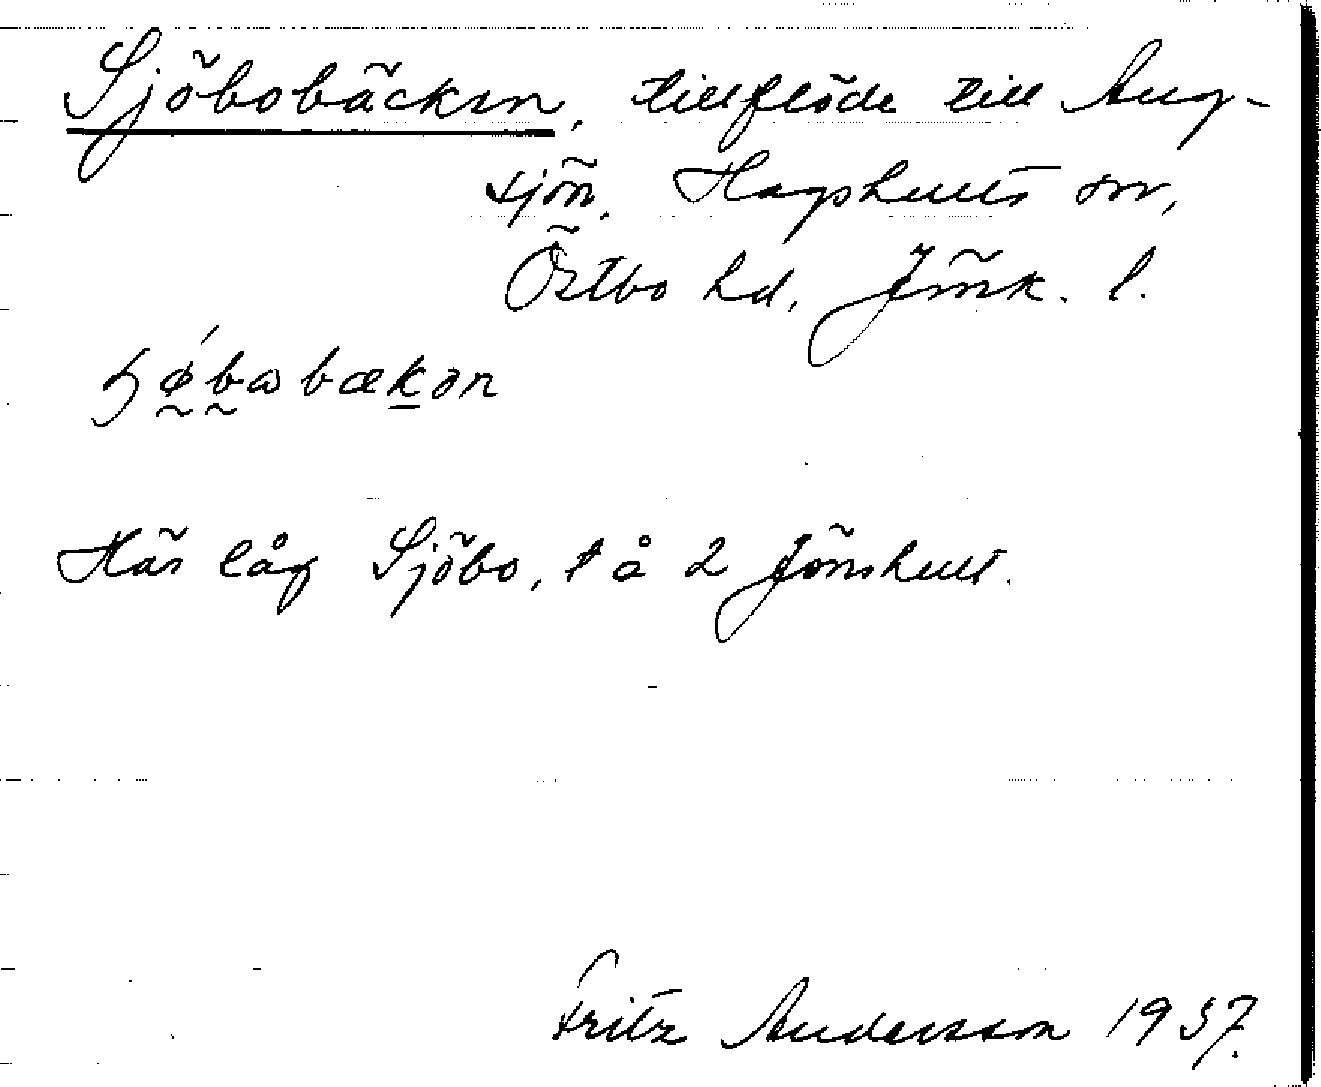 Sjöbobäcken, tillflöde till Aug-
sjön, Hagshults sn,
Östbo hd, Jönk. l.
Här låg Sjöbo, t å 2 Jönshult.
Fritz Andersson 1937.